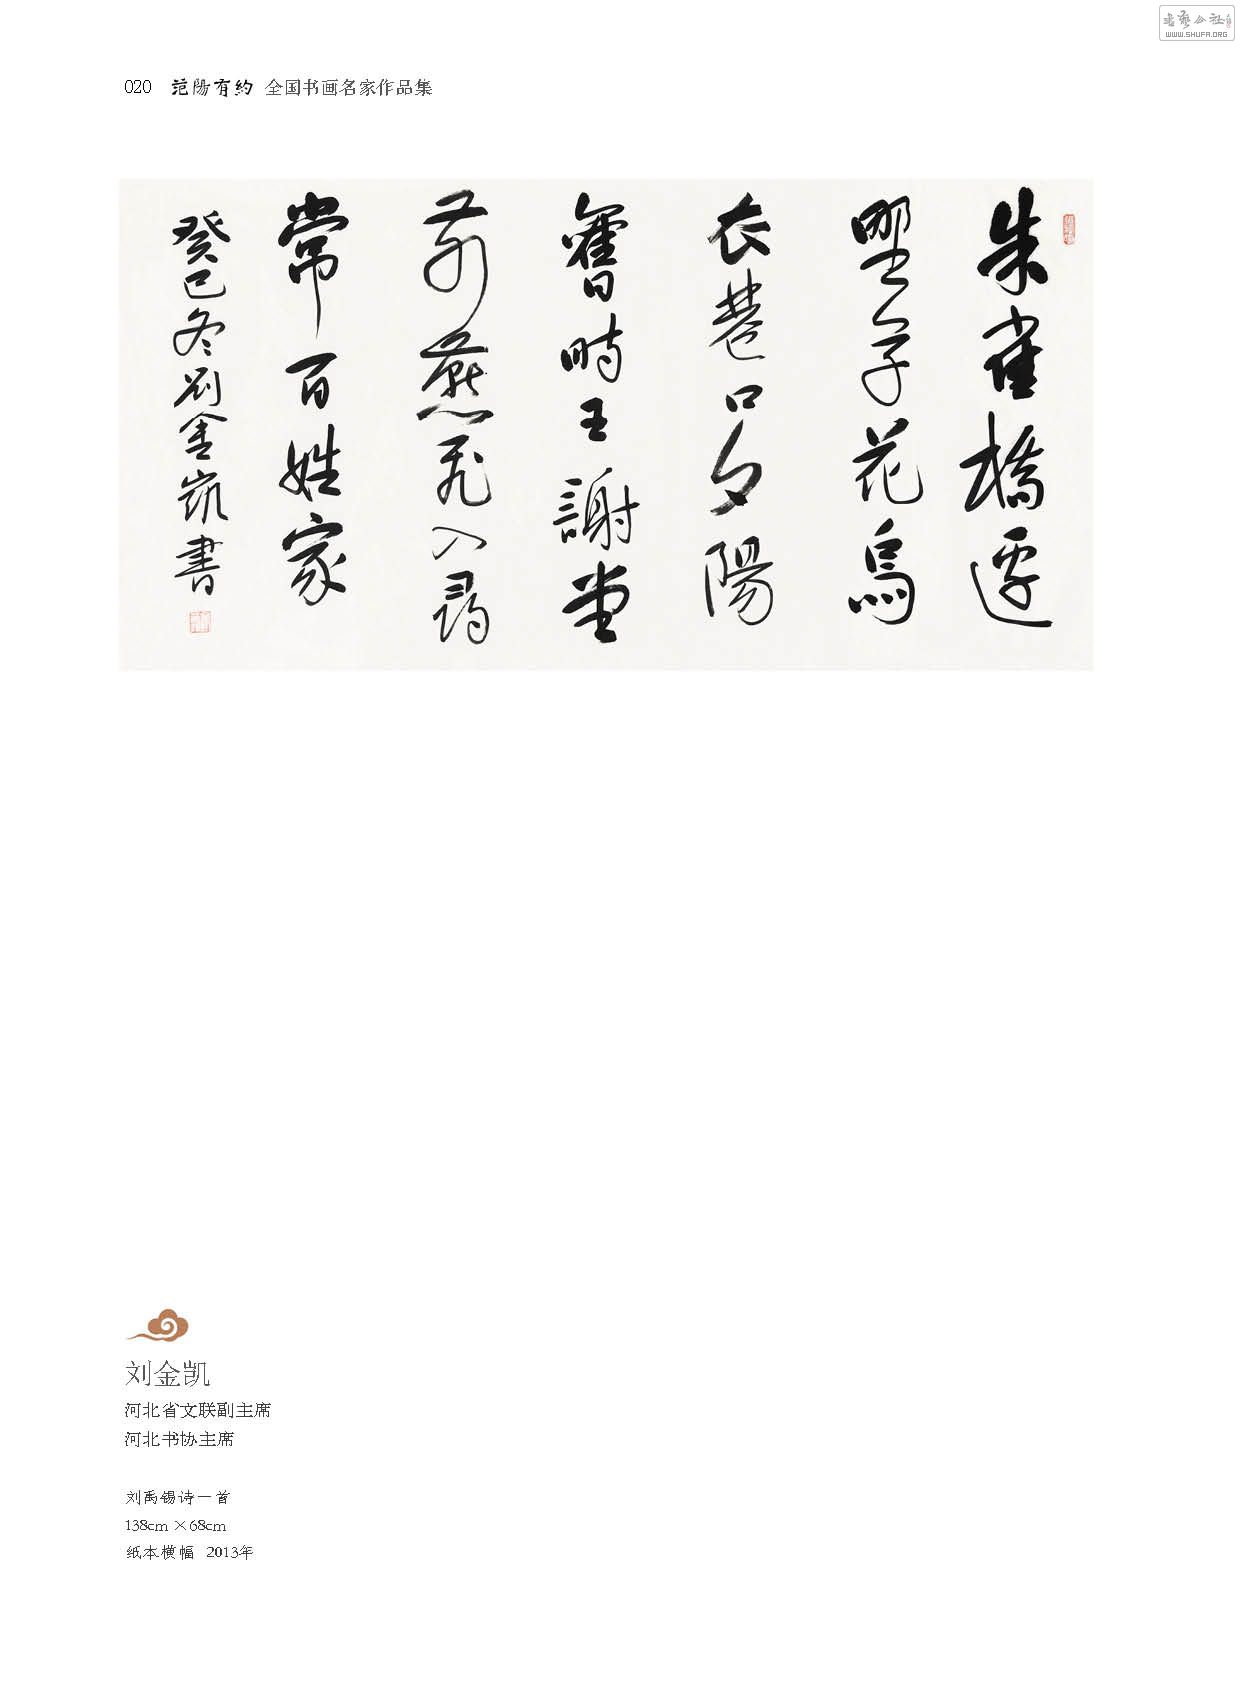 書藝公社
WWW.SHUFA.ORG
020 范陽有約 全国书画名家作品集
朱雀橋邊
野草花烏
衣巷口夕陽
舊時王謝堂
前燕飛入尋
常百姓家
癸巳冬劉金凱書
刘金凯
河北省文联副主席
河北书协主席
刘禹锡诗一首
138cm×68cm
纸本横幅 2013年